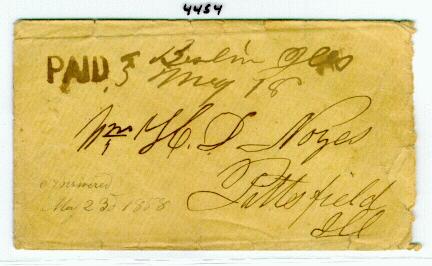 4454
PAID 3 Berlin Ills
May 18
Wm H. D Noyes
Pittsfield
Ill
answered
May 23d 1858